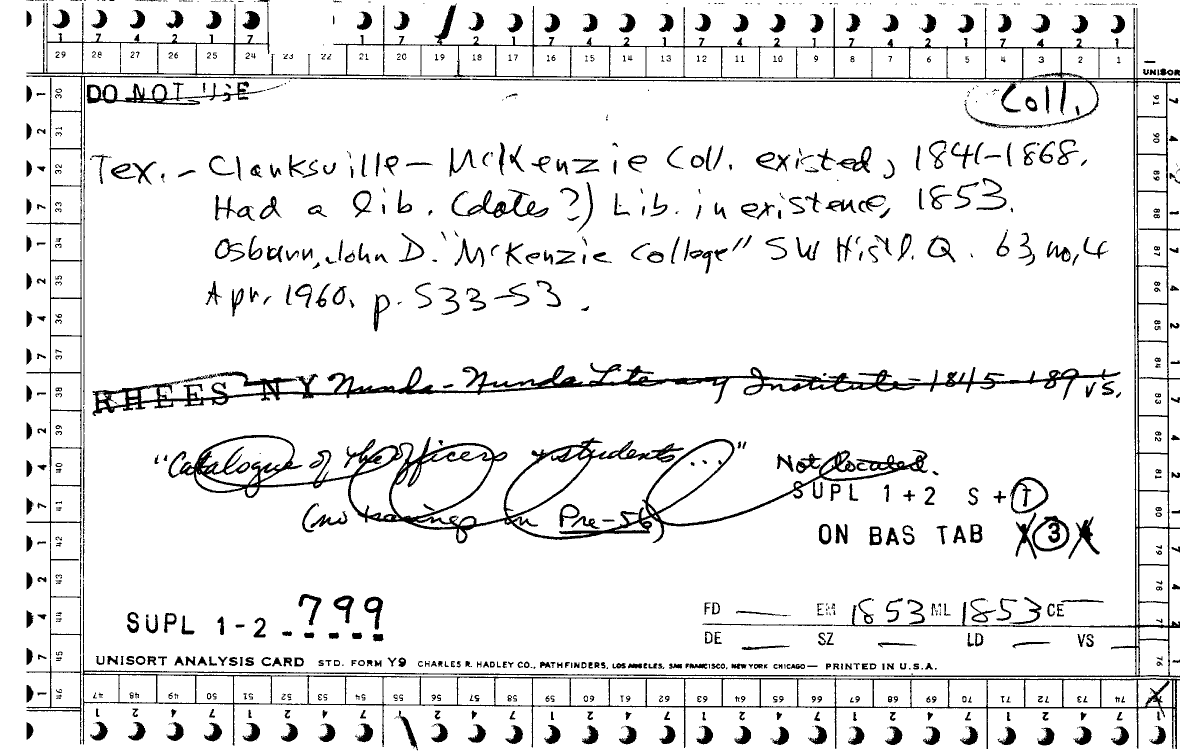 1 7 2 1 7 1 7 4 2 1 7 4 2 1 7 4 2 1 7 4 2 1 7 4 2 1
29 28 27 26 25 24 23 22 21 20 19 18 17 16 15 14 13 12 11 10 9 8 7 6 5 4 3 2 1
UNISOR
DO NOT USE
Coll.
Tex. - Clarksville - McKenzie Coll. existed, 1841-1868.
Had a lib. (dates?) Lib. in existence, 1853.
Osburn, John D. "McKenzie College" SW Hist'l. Q. 63, no, 4
Apr. 1960. p. 533-53.
RHEES N Y Nunda - Nunda Literary Institute 1845 - 189 vs.
"Catalogue of the officers + students ..."
Not located.
SUPL 1+2 S + 1
(no in Pre-56)
ON BAS TAB 3 4
SUPL 1-2 - 799
FD EM 1853 ML 1853 CE
DE SZ LD VS
UNISORT ANALYSIS CARD STD. FORM Y9 CHARLES R. HADLEY CO., PATHFINDERS, LOS ANGELES, SAN FRANCISCO, NEW YORK CHICAGO — PRINTED IN U.S.A.
47 48 49 50 51 52 53 54 55 56 57 58 59 60 61 62 63 64 65 66 67 68 69 70 71 72 73 74